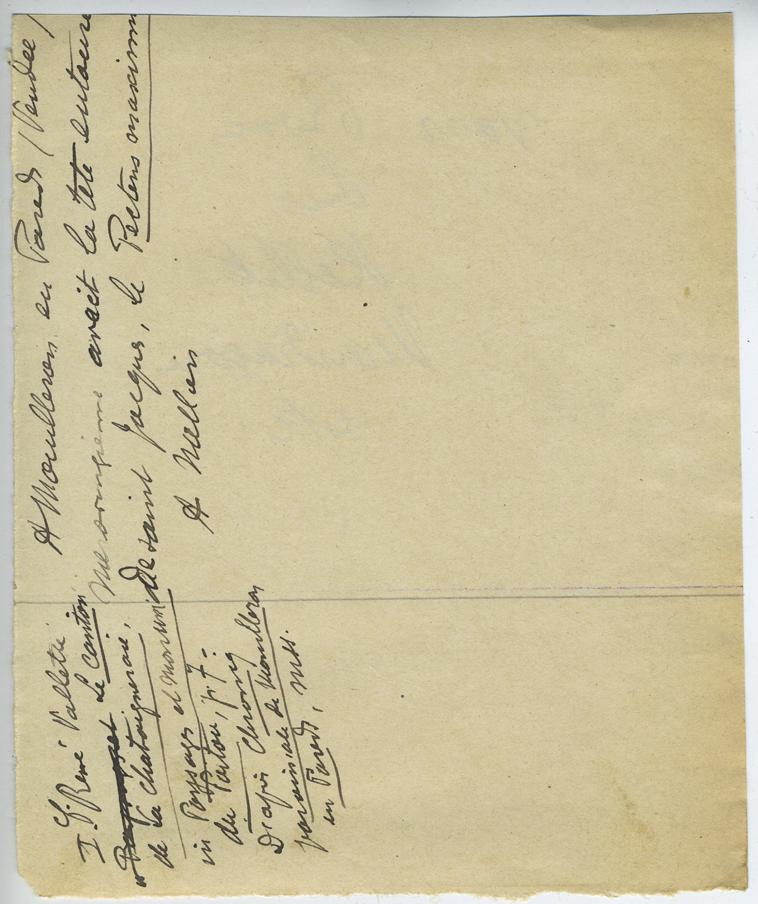 A Mouilleron en Pareds (Vendée)
avait la tête entourée
de saint Jacques, le Pectens maximum
A
I. Cf. René Vallette
Le canton
de la Chataigneraie,
in Paysages et Monum
du Poitou, p. 7 :
D'après Chroniq
paroissiale de Mouilleron
en Pareds, Mss.